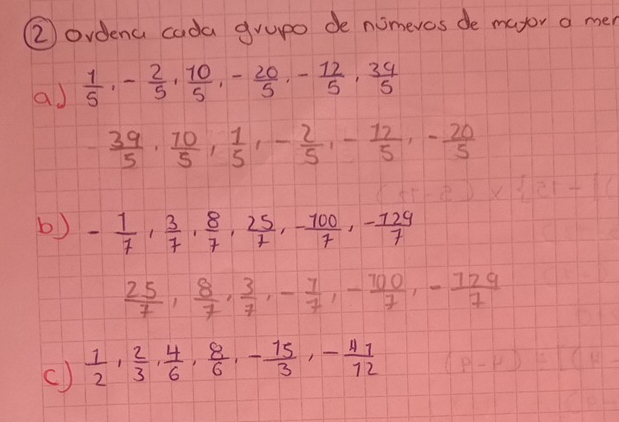 ② ordena cada grupo de números de mayor a men
a) 1/5, -2/5, 10/5, -20/5, -12/5, 39/5
39/5, 10/5, 1/5, -2/5, -12/5, -20/5
b) -1/7, 3/7, 8/7, 25/7, -100/7, -129/7
25/7, 8/7, 3/7, -1/7, -100/7, -129/7
c) 1/2, 2/3, 4/6, 8/6, -15/3, -41/12